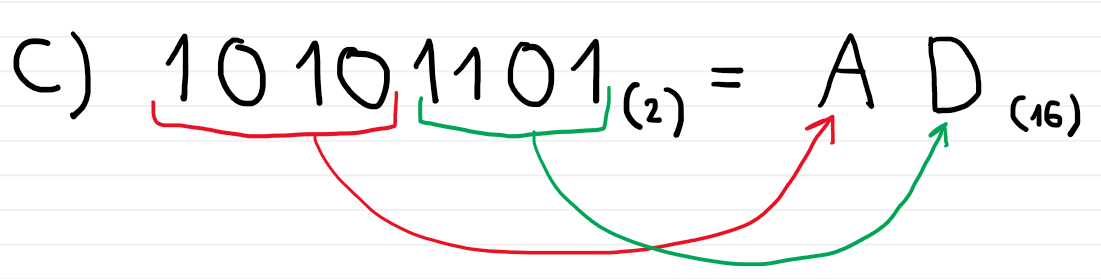 C) 10101101(2) = AD (16)